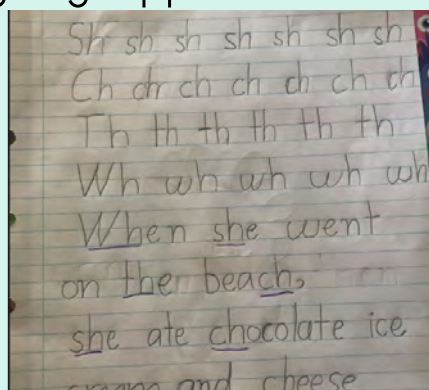 Sh sh sh sh sh sh sh
Ch ch ch ch ch ch ch
Th th th th th th
Wh wh wh wh wh
When she went
on the beach,
she ate chocolate ice
cream and cheese